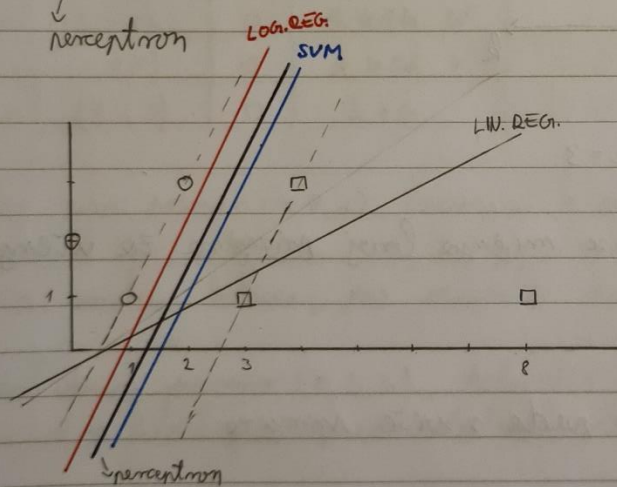 perceptron
LOG.REG.
SVM
LIN. REG.
1
1 2 3 8
perceptron